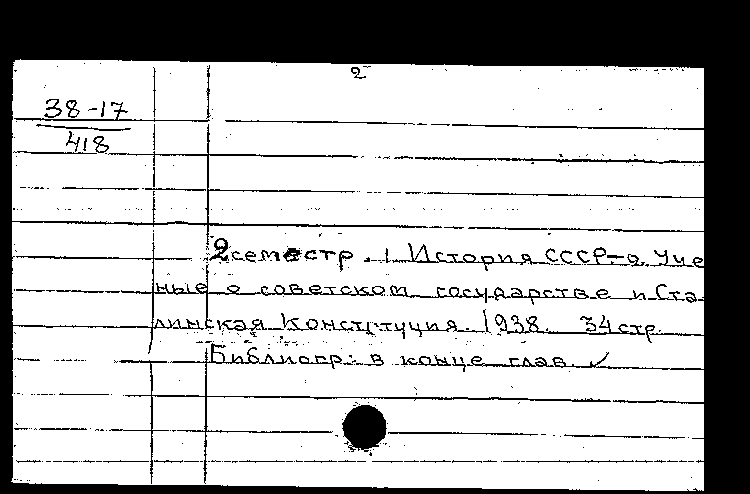 2
38-17
418
2 семестр. 1 История СССР-а. Уче
ные о советском государстве и Ста
линская Конституция. 1938. 34 стр.
Библиогр: в конце глав.